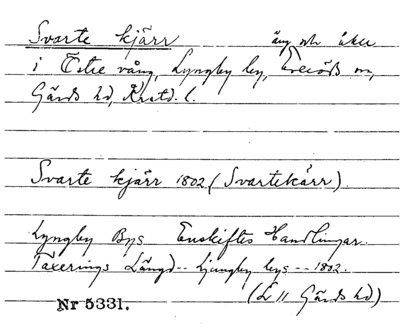 Svarte kjärr äng och åker
i Östre vång, Lyngby by, Everöds sn,
Gärds hd, Kristd. l.
Svarte kjärr 1802 (Svartekärr)
Lyngby Bys Enskiftes Handlingar.
Taxerings Längd -- Ljungby bys -- 1802.
(L 11 Gärds hd)
Nr 5331.